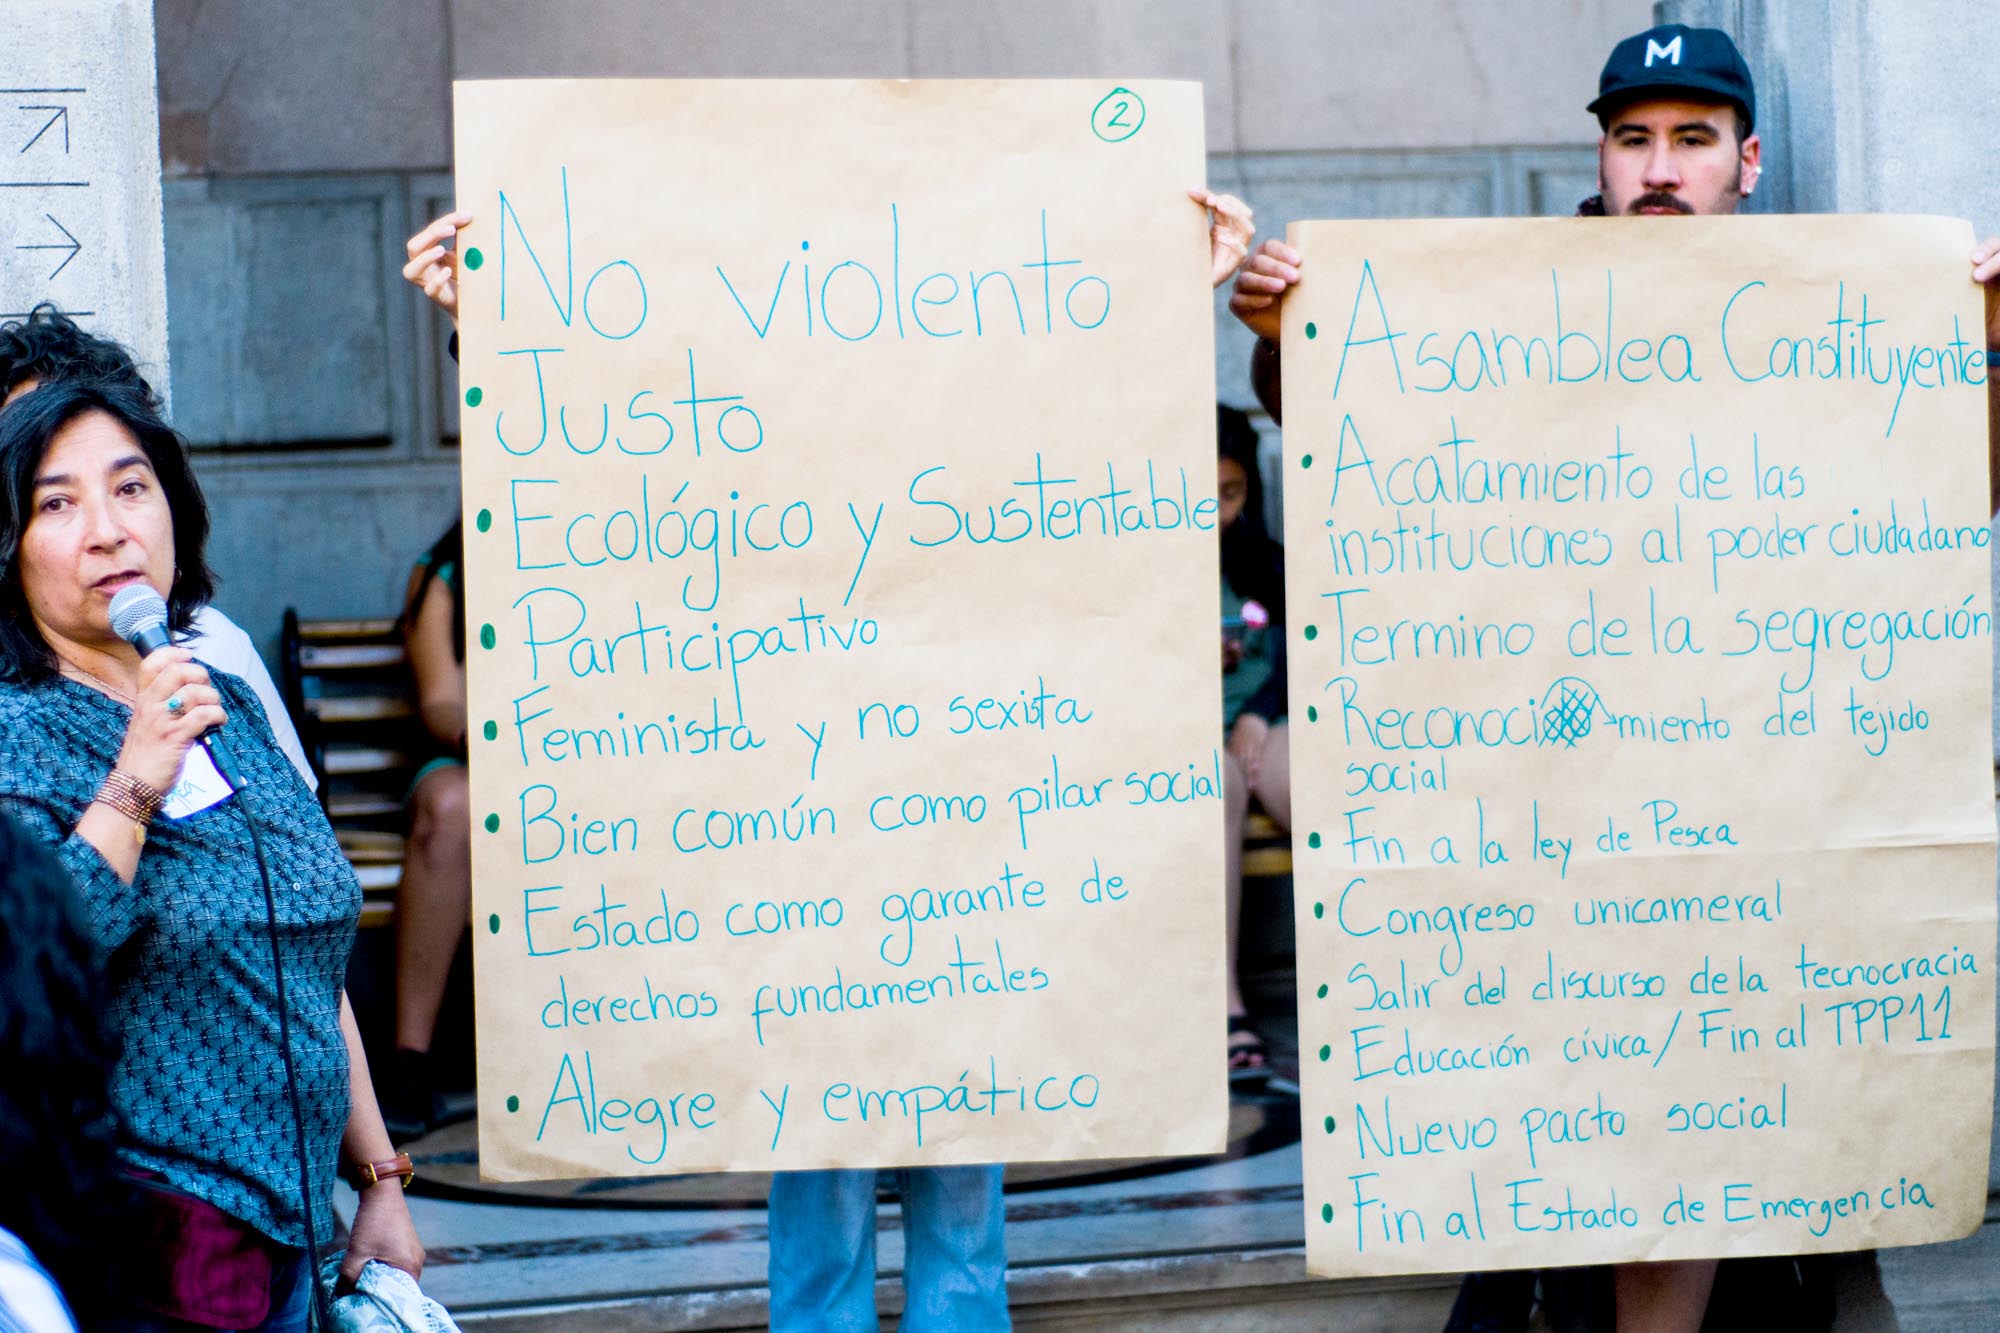 2
• No violento
• Justo
• Ecológico y Sustentable
• Participativo
• Feminista y no sexista
• Bien común como pilar social
• Estado como garante de
derechos fundamentales
• Alegre y empático
M
• Asamblea Constituyente
• Acatamiento de las
instituciones al poder ciudadano
• Termino de la segregación
• Reconocimiento del tejido
social
• Fin a la ley de Pesca
• Congreso unicameral
• Salir del discurso de la tecnocracia
• Educación cívica / Fin al TPP11
• Nuevo pacto social
• Fin al Estado de Emergencia